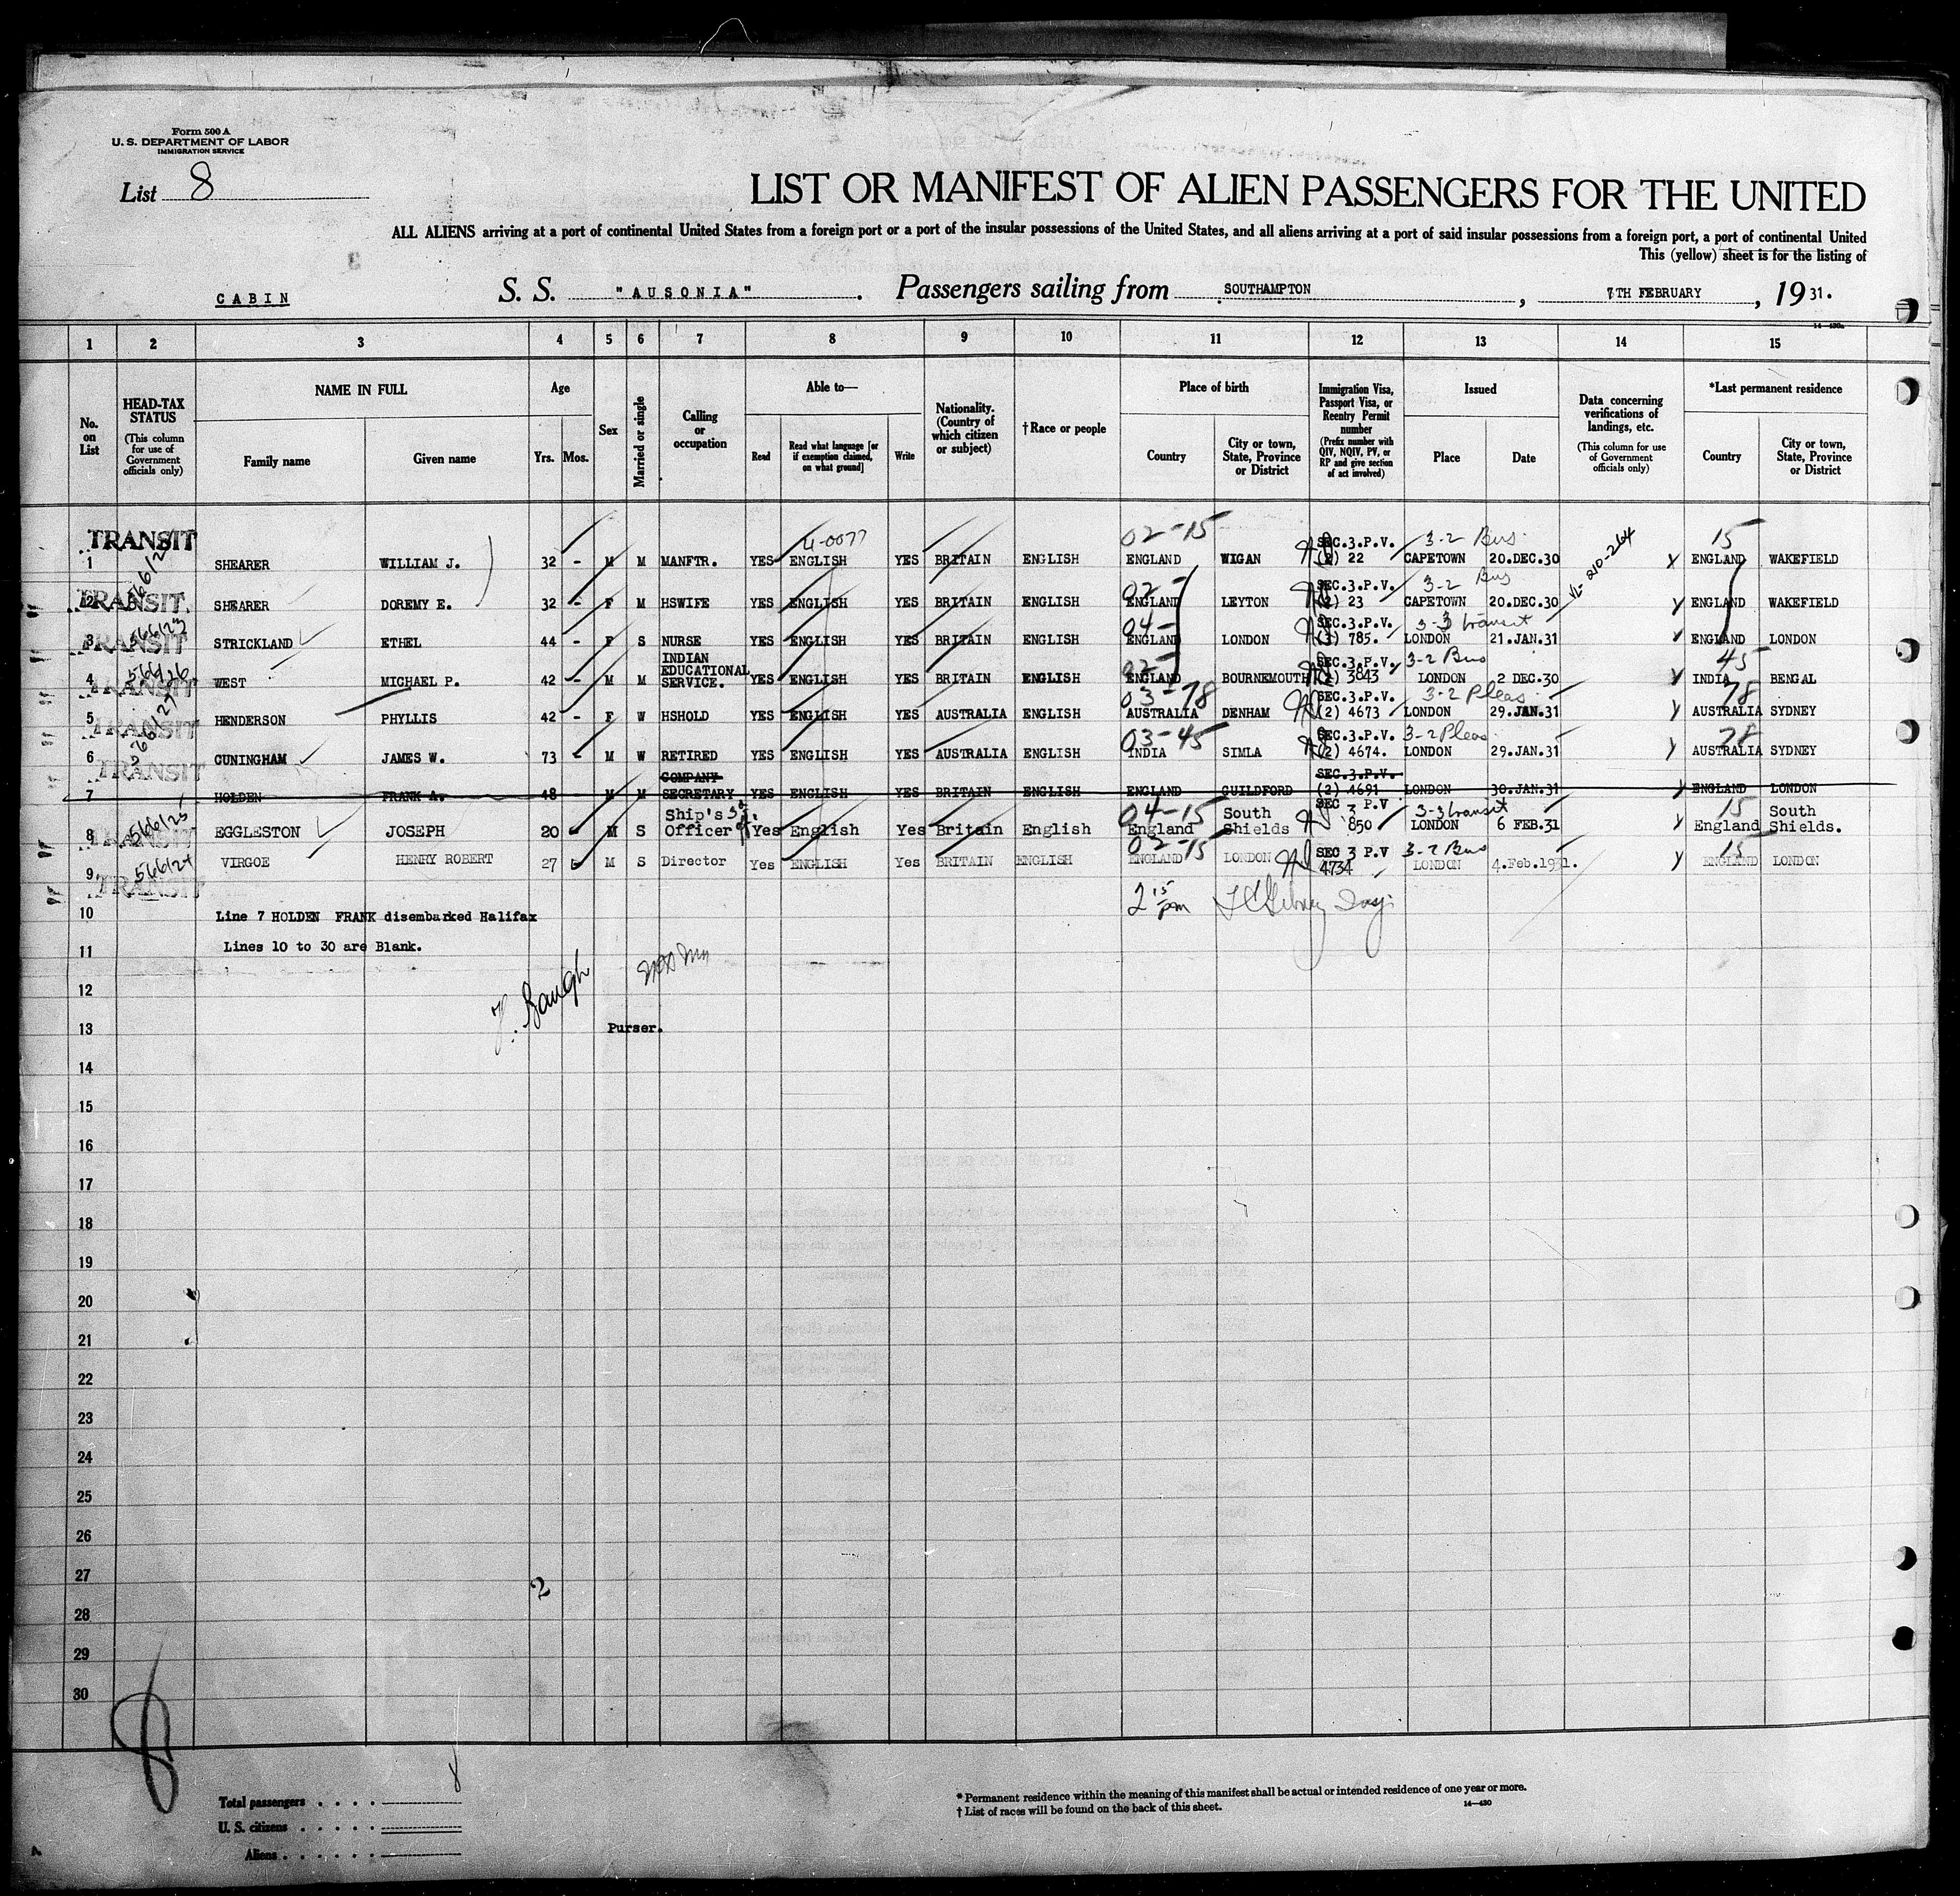 Form 500 A
U. S. DEPARTMENT OF LABOR
IMMIGRATION SERVICE
List 8
LIST OR MANIFEST OF ALIEN PASSENGERS FOR THE UNITED
ALL ALIENS arriving at a port of continental United States from a foreign port or a port of the insular possessions of the United States, and all aliens arriving at a port of said insular possessions from a foreign port, a port of continental United
This (yellow) sheet is for the listing of
CABIN S. S. "AUSONIA". Passengers sailing from SOUTHAMPTON, 7TH FEBRUARY, 1931.
1 2 3 4 5 6 7 8 9 10 11 12 13 14 15
No. on List
HEAD-TAX STATUS (This column for use of Government officials only)
NAME IN FULL
Family name Given name
Age
Yrs. Mos.
Sex
Married or single
Calling or occupation
Able to—
Read Read what language [or if exemption claimed, on what ground] Write
Nationality. (Country of which citizen or subject)
†Race or people
Place of birth
Country City or town, State, Province or District
Immigration Visa, Passport Visa, or Reentry Permit number (Prefix number with QIV, NQIV, PV, or RP and give section of act involved)
Issued
Place Date
Data concerning verifications of landings, etc. (This column for use of Government officials only)
*Last permanent residence
Country City or town, State, Province or District
TRANSIT 4-0077 02-15 SEC.3.P.V. 3-2 Bus 15
1 SHEARER WILLIAM J. 32 - M M MANFTR. YES ENGLISH YES BRITAIN ENGLISH ENGLAND WIGAN (2) 22 CAPETOWN 20.DEC.30 ENGLAND WAKEFIELD
TRANSIT 02- SEC.3.P.V. 3-2 Bus
2 SHEARER DOREMY E. 32 - F M HSWIFE YES ENGLISH YES BRITAIN ENGLISH ENGLAND LEYTON (2) 23 CAPETOWN 20.DEC.30 ENGLAND WAKEFIELD
TRANSIT 04- SEC.3.P.V. 3-3 transit
3 STRICKLAND ETHEL 44 - F S NURSE YES ENGLISH YES BRITAIN ENGLISH ENGLAND LONDON (3) 785. LONDON 21.JAN.31 ENGLAND LONDON
TRANSIT 56626 02- SEC.3.P.V. 3-2 Bus 45
4 WEST MICHAEL P. 42 - M M INDIAN EDUCATIONAL SERVICE. YES ENGLISH YES BRITAIN ENGLISH ENGLAND BOURNEMOUTH (2) 3843 LONDON 2 DEC.30 INDIA BENGAL
TRANSIT 03-78 SEC.3.P.V. 3-2 Pleas 78
5 HENDERSON PHYLLIS 42 - F W HSHOLD YES ENGLISH YES AUSTRALIA ENGLISH AUSTRALIA DENHAM (2) 4673 LONDON 29.JAN.31 AUSTRALIA SYDNEY
TRANSIT 03-45 SEC.3.P.V. 3-2 Pleas 78
6 CUNINGHAM JAMES W. 73 - M W RETIRED YES ENGLISH YES AUSTRALIA ENGLISH INDIA SIMLA (2) 4674. LONDON 29.JAN.31 AUSTRALIA SYDNEY
7 HOLDEN FRANK A. 48 - M M COMPANY SECRETARY YES ENGLISH YES BRITAIN ENGLISH ENGLAND GUILDFORD SEC.3.P.V. (2) 4691 LONDON 30.JAN.31 ENGLAND LONDON
TRANSIT 04-15 SEC 3 P.V 3-3 transit 15
8 EGGLESTON JOSEPH 20 M S Ship's 3d Officer Yes English Yes Britain English England South Shields 850 LONDON 6 FEB.31 England South Shields.
TRANSIT 02-15 SEC 3 P.V 3-2 Bus 15
9 VIRGOE HENRY ROBERT 27 M S Director Yes ENGLISH Yes BRITAIN ENGLISH ENGLAND LONDON 4734 LONDON 4.Feb.1931. ENGLAND LONDON
2 15 pm
10 Line 7 HOLDEN FRANK disembarked Halifax
11 Lines 10 to 30 are Blank.
12
13 Purser.
14
15
16
17
18
19
20
21
22
23
24
25
26
27 2
28
29
30
8
Total passengers
U. S. citizens
Aliens
* Permanent residence within the meaning of this manifest shall be actual or intended residence of one year or more.
† List of races will be found on the back of this sheet.
14—430